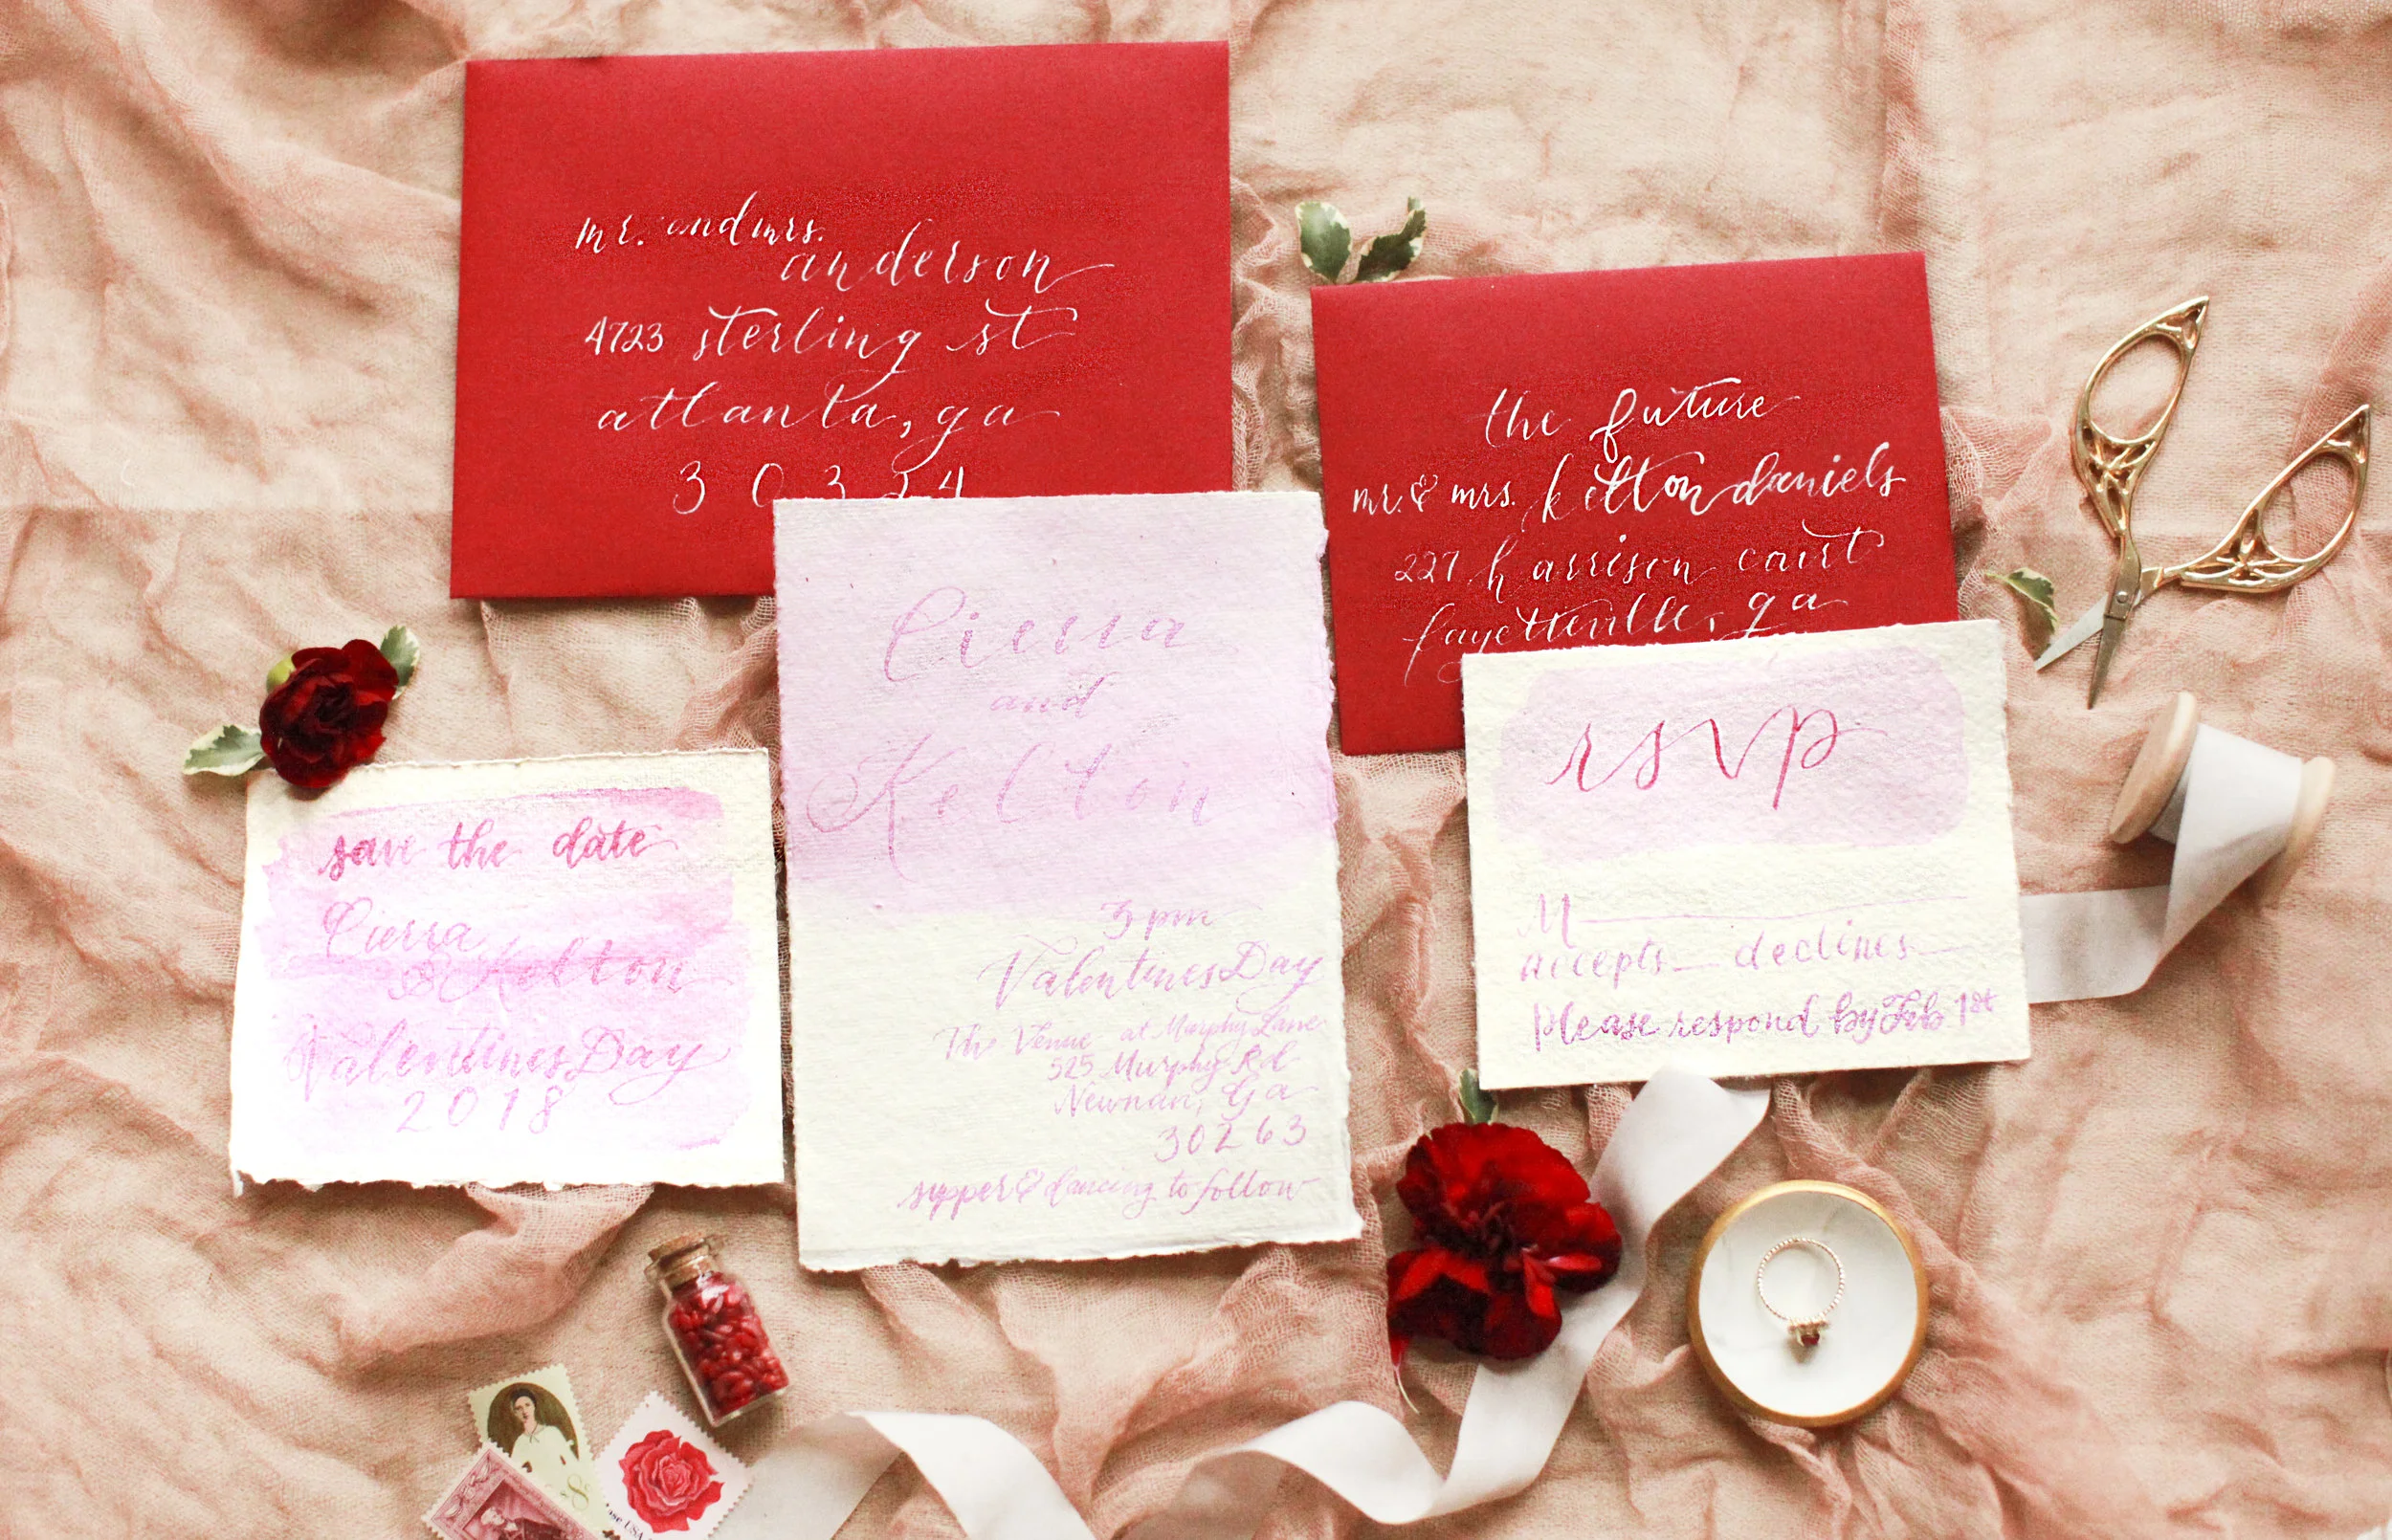 mr. and mrs.
anderson
4723 sterling st
atlanta, ga
30324
the future
mr. & mrs. kelton daniels
227 harrison court
fayetteville, ga
save the date
Cierra
& Kelton
Valentines Day
2018
Cierra
and
Kelton
3 pm
Valentines Day
The Venue at Murphy Lane
525 Murphy Rd
Newnan, Ga
30263
supper & dancing to follow
rsvp
M
accepts declines
Please respond by Feb 1st
8c
USA